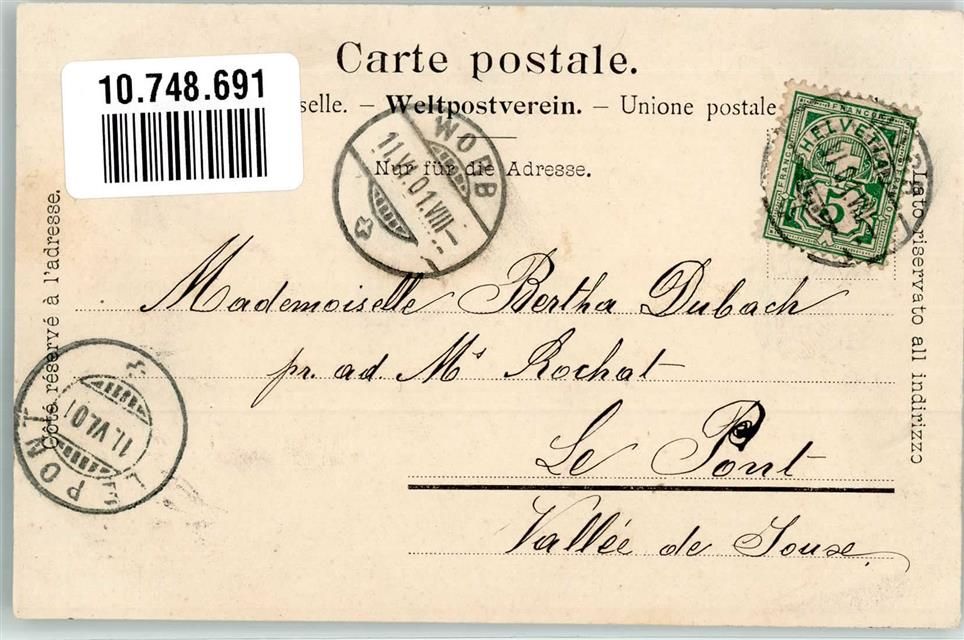 10.748.691
Carte postale.
selle. – Weltpostverein. – Unione postale
Nur für die Adresse.
Côté réservé à l'adresse.
Lato riservato all indirizzo
WORB
11.VI.01.VIII–
FRANCO
HELVETIA
5
LE PONT
11.VI.01
Mademoiselle Bertha Dubach
pr. ad. Mr Rochat
Le Pont
Vallée de Joux.